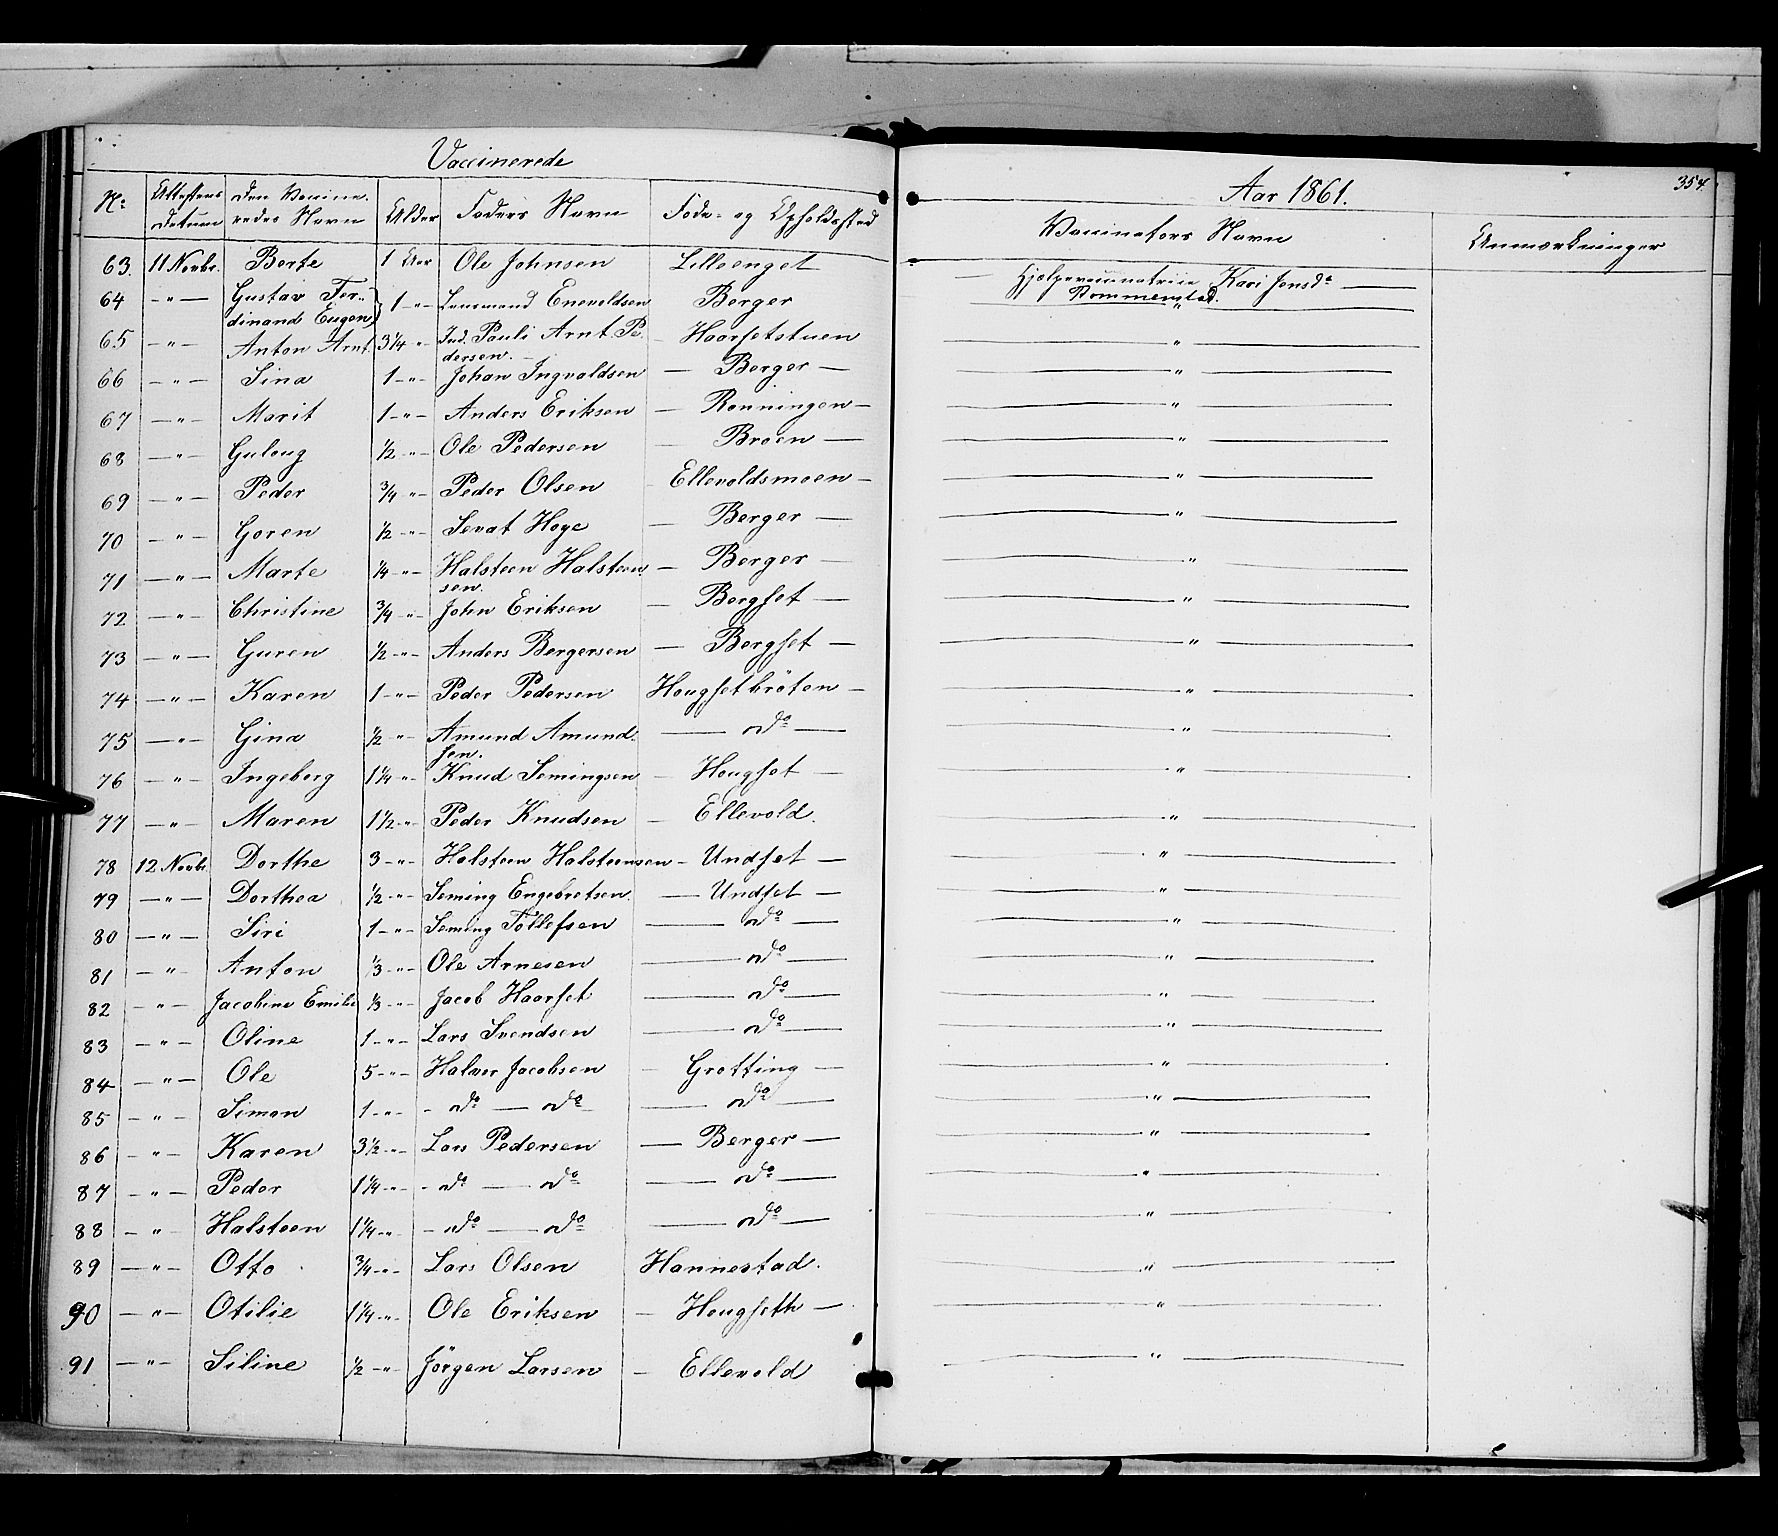 Vaccinerede
Aar 1861.
354
No Attestens Datum Den Vaccineredes Navn Alder Faders Navn Føde- og Opholdssted Vaccinators Navn Anmærkninger
63. 11 Novbr. Berte 1 Aar Ole Johnsen Lilleenget Hjælpevaccinatrice Kari Jensdr
64 — " — Gustav Fer- 1 — " Lensmand Enevoldsen Berger Rommenstad. "
dinand Eugen
65 — " — Anton Arnt 3 1/4 " Ind. Pauli Arnt Pe Haarsetstuen — " —
dersen. —
66 — " — Sina 1 — " — Johan Ingvaldsen — Berger — — " —
67 — " — Marit 1 — " — Anders Eriksen — Rønningen — — " —
68 — " — Guloug 1/2 — " — Ole Pedersen — Broen — — " —
69 — " — Peder 3/4 — " — Peder Olsen — Ellevoldsmoen — — " —
70 — " — Goren 1/2 — " — Sevat Hoye — Berger — — " —
71 — " — Marte 1/4 — " — Halsteen Halsteen — Berger — — " —
sen.
72 — " — Christine 3/4 — " — John Eriksen — Bergset — — " —
73 — " — Guren 1/2 — " — Anders Bergersen — Bergset — — " —
74 — " — Karen 1 — " — Peder Pedersen Hougsetbröten — — " —
75 — " — Gina 1/2 — " — Amund Amund- — do — — " —
sen.
76 — " — Ingeborg 1 1/4 — " — Knud Semingsen — Hougset — — " —
77 — " — Maren 1 1/2 — " — Peder Knudsen — Ellevold. — " —
78 12 Novbr. Dorthe 3 — " — Halsteen Halsteensen — Undset — — " —
79 — " — Dorthea 1/2 — " — Seming Engebretsen. — Undset — — " —
80 — " — Siri 1 — " — Seming Tollefsen — do — — " —
81 — " — Anton 1/3 — " — Ole Arnesen — do — — " —
82 — " — Jacobine Emilie 1/3 — " — Jacob Haarset — do — — " —
83 — " — Oline 1 — " — Lars Svendsen — do — — " —
84 — " — Ole 5 — " — Halvor Jacobsen — Grotting — — " —
85 — " — Simon 1 — " — — do — do — do — — " —
86 — " — Karen 3 1/2 — " — Lars Pedersen — Berger — — " —
87 — " — Peder 1 1/4 — " — — do — do — do — — " —
88 — " — Halsteen 1 1/4 — " — — do — do — do — — " —
89 — " — Otto 3/4 — " — Lars Olsen Hannestad. — " —
90 — " — Otilie 1 1/4 — " — Ole Eriksen — Hougseth — — " —
91 — " — Siline 1/2 — " — Jörgen Larsen — Ellevold — " —